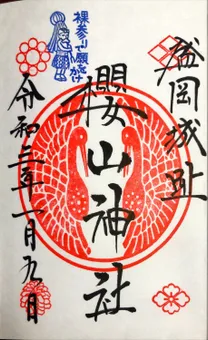 盛岡城址
裸参りで願かけ
櫻山神社
令和三年一月九日